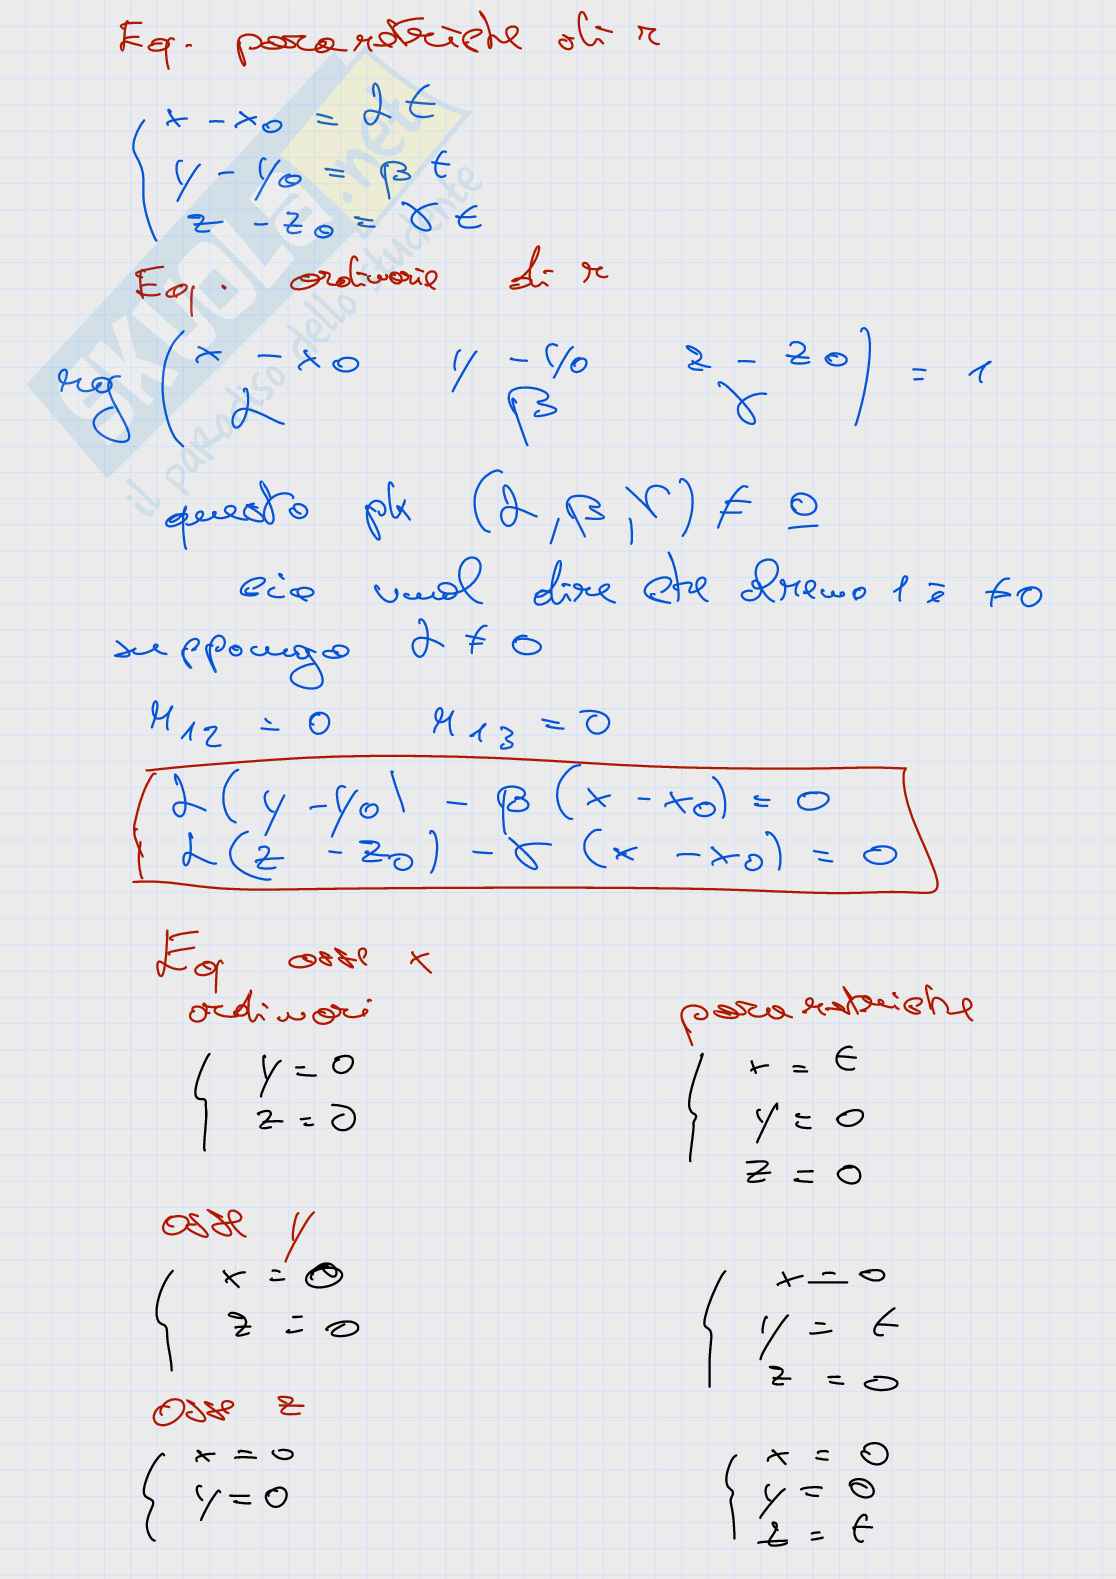 Eq. parametriche di r
x - x0 = α t
y - y0 = β t
z - z0 = γ t
Eq. ordinarie di r
rg ( x - x0 y - y0 z - z0 ) = 1
α β γ
questo pk (α, β, γ) ≠ 0
cio vuol dire che almeno 1 è ≠ 0
suppongo α ≠ 0
M12 = 0 M13 = 0
α (y - y0) - β (x - x0) = 0
α (z - z0) - γ (x - x0) = 0
Eq asse x
ordinari parametriche
y = 0
z = 0
x = t
y = 0
z = 0
asse y
x = 0
z = 0
x = 0
y = t
z = 0
asse z
x = 0
y = 0
x = 0
y = 0
z = t
SKUOLA.net
il paradiso dello studente